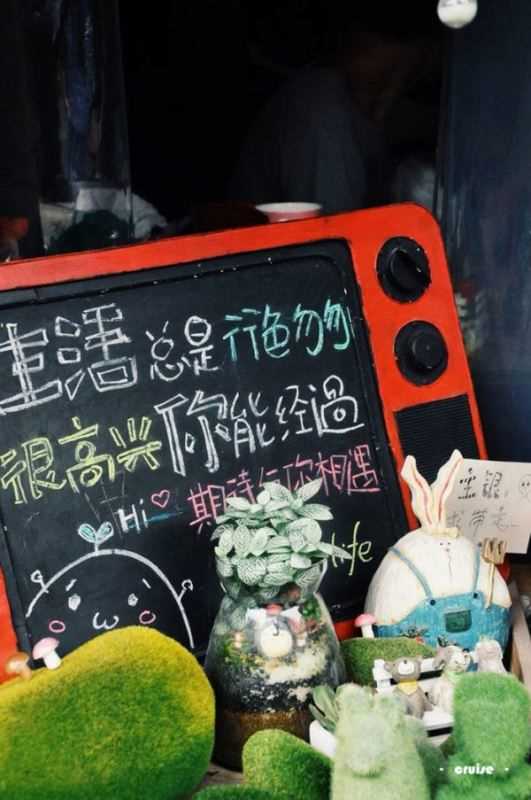 生活总是行色匆匆
很高兴你能经過
Hi 期待与你相遇
life
cruise